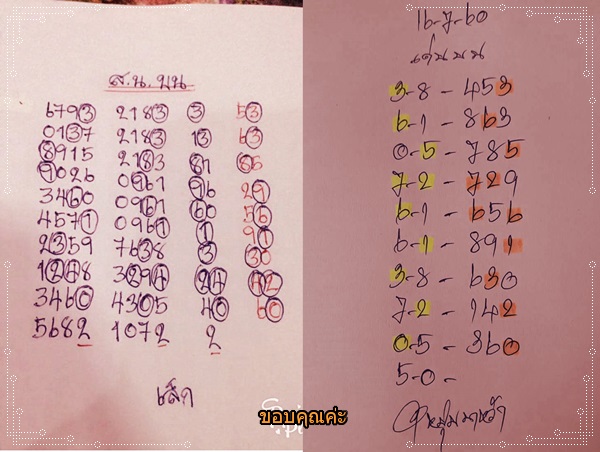 ส.น. บน
6793 2183 3 53
0137 2183 13 63
8915 2183 81 85
9026 0961 96 29
3460 0961 60 56
4571 0961 1 91
2359 7638 3 30
1248 3294 24 42
3460 4305 40 60
5682 1072 2
เล็ก
16-7-60
เด่นบน
3-8 - 453
6-1 - 863
0-5 - 785
7-2 - 729
6-1 - 656
6-1 - 891
3-8 - 630
7-2 - 142
0-5 - 360
5-0 -
ขอบคุณค่ะ